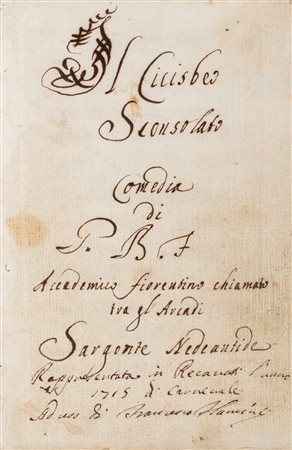 Il Cicisbeo
Sconsolato
Comedia
di
P. B. F
Accademico fiorentino chiamato
tra gl Arcadi
Sargente Nedeantide
Rappresentata in Recanati
1715 di Carnevale
Ad uso di Francesco